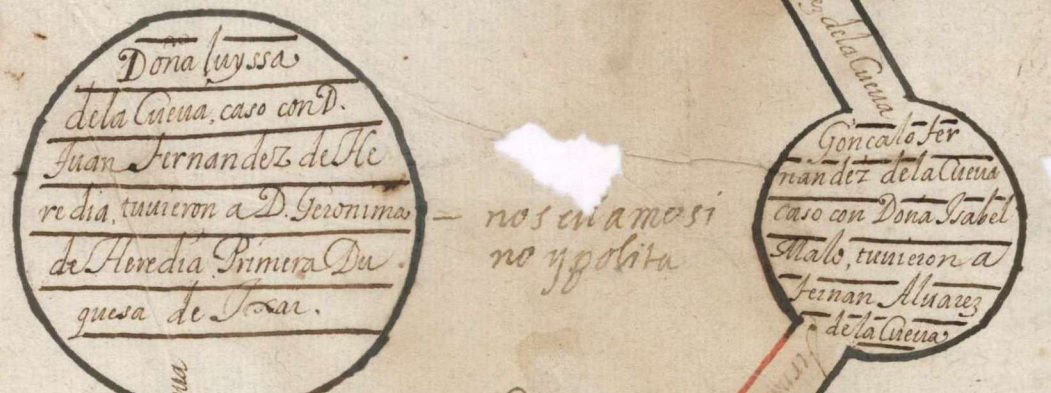 Dona luyssa
dela Cueua, caso con D.
Juan Fernandez de He
redia, tuuieron a D. Geronima
de Heredia Primera Du
quesa de Ixar.
no ypolita
ez dela Cueua
Goncalo Fer
nandez dela Cueua
caso con Dona Isabel
Malo, tuuieron a
Fernan Aluarez
de la Cueua